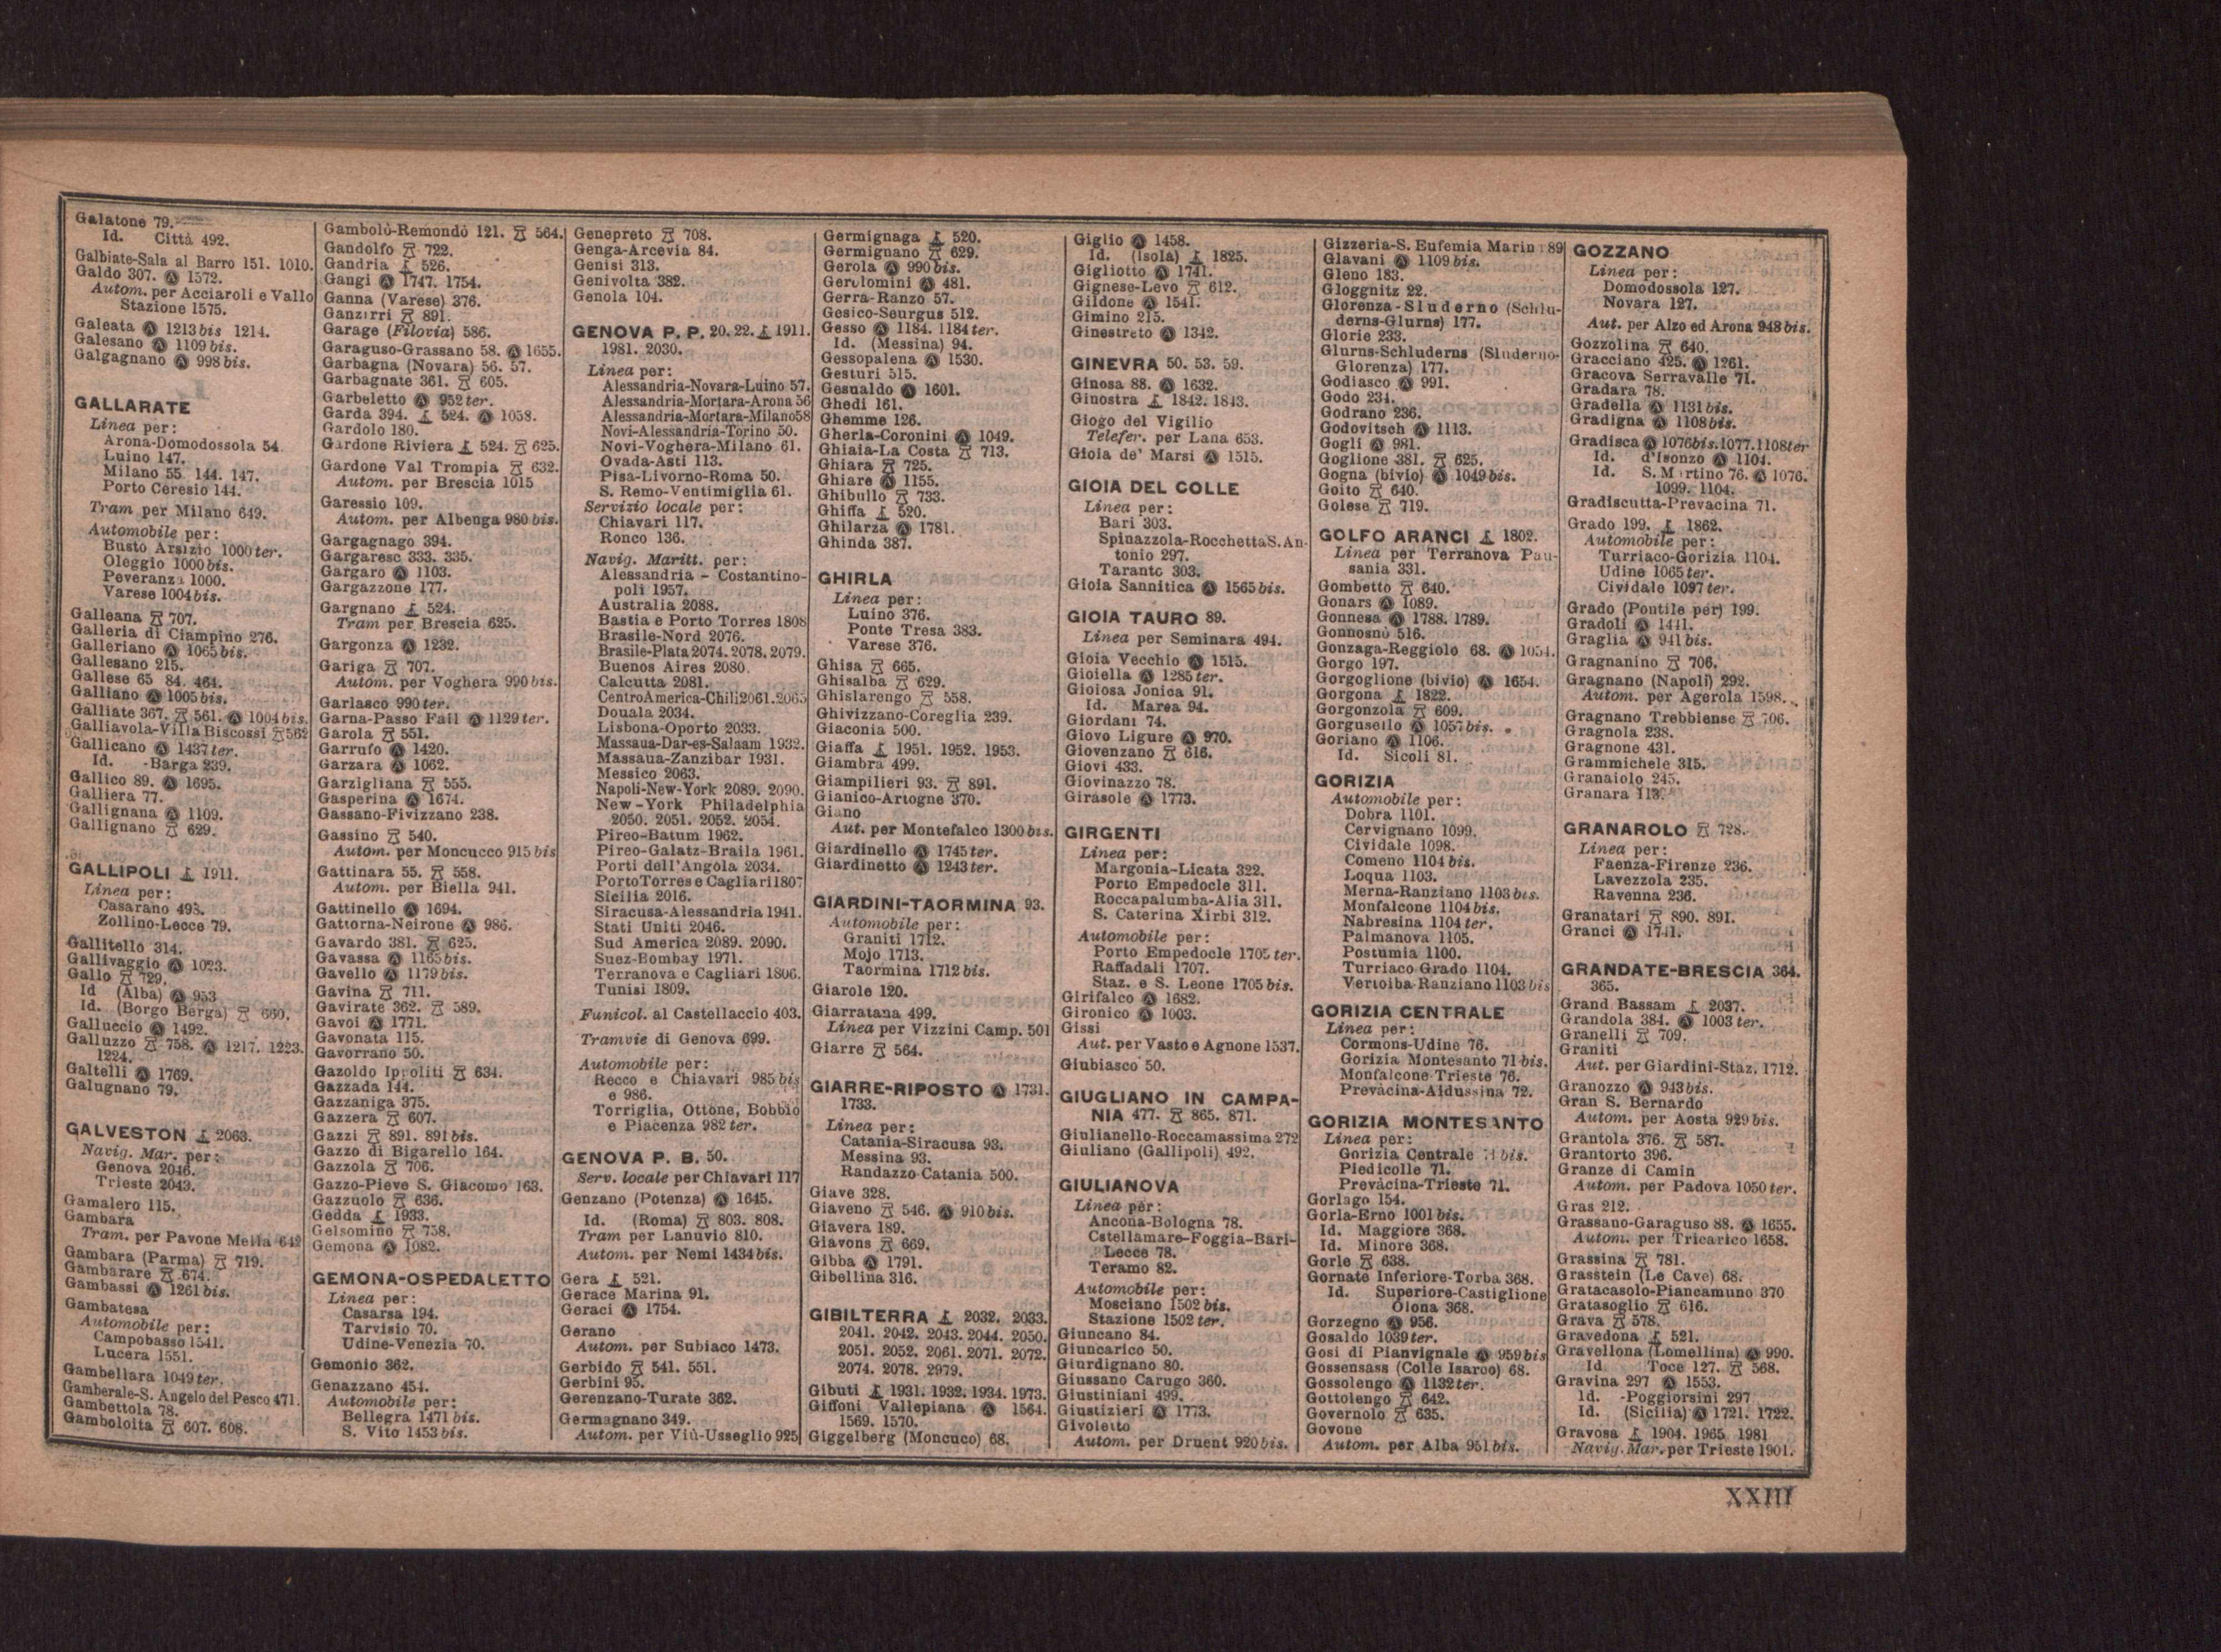 Galatone 79.
Id. Città 492.
Galbiate-Sala al Barro 151. 1010.
Galdo 307. Ⓐ 1572.
Autom. per Acciaroli e Vallo
Stazione 1575.
Galeata Ⓐ 1213 bis 1214.
Galesano Ⓐ 1109 bis.
Galgagnano Ⓐ 998 bis.
GALLARATE
Linea per:
Arona-Domodossola 54.
Luino 147.
Milano 55. 144. 147.
Porto Ceresio 144.
Tram per Milano 649.
Automobile per:
Busto Arsizio 1000 ter.
Oleggio 1000 bis.
Peveranza 1000.
Varese 1004 bis.
Galleana 707.
Galleria di Ciampino 276.
Galleriano Ⓐ 1065 bis.
Gallesano 215.
Gallese 65 84. 464.
Galliano Ⓐ 1005 bis.
Galliate 367. 561. Ⓐ 1004 bis.
Galliavola-Villa Biscossi 562
Gallicano Ⓐ 1437 ter.
Id. -Barga 239.
Gallico 89. Ⓐ 1695.
Galliera 77.
Gallignana Ⓐ 1109.
Gallignano 629.
GALLIPOLI 1911.
Linea per:
Casarano 493.
Zollino-Lecce 79.
Gallitello 314.
Gallivaggio Ⓐ 1023.
Gallo 729.
Id (Alba) Ⓐ 953
Id. (Borgo Berga) 660.
Galluccio Ⓐ 1492.
Galluzzo 758. Ⓐ 1217. 1223.
1224.
Galtelli Ⓐ 1769.
Galugnano 79.
GALVESTON 2063.
Navig. Mar. per:
Genova 2046.
Trieste 2043.
Gamalero 115.
Gambara
Tram. per Pavone Mella 642
Gambara (Parma) 719.
Gambarare 674.
Gambassi Ⓐ 1261 bis.
Gambatesa
Automobile per:
Campobasso 1541.
Lucera 1551.
Gambellara 1049 ter.
Gamberale-S. Angelo del Pesco 471.
Gambettola 78.
Gamboloita 607. 608.
Gambolò-Remondò 121. 564.
Gandolfo 722.
Gandria 526.
Gangi Ⓐ 1747. 1754.
Ganna (Varese) 376.
Ganzirri 891.
Garage (Filovia) 586.
Garaguso-Grassano 58. Ⓐ 1655.
Garbagna (Novara) 56. 57.
Garbagnate 361. 605.
Garbeletto Ⓐ 952 ter.
Garda 394. 524. Ⓐ 1058.
Gardolo 180.
Gardone Riviera 524. 625.
Gardone Val Trompia 632.
Autom. per Brescia 1015
Garessio 109.
Autom. per Albenga 980 bis.
Gargagnago 394.
Gargaresc 333. 335.
Gargaro Ⓐ 1103.
Gargazzone 177.
Gargnano 524.
Tram per Brescia 625.
Gargonza Ⓐ 1232.
Gariga 707.
Autom. per Voghera 990 bis.
Garlasco 990 ter.
Garna-Passo Fail Ⓐ 1129 ter.
Garola 551.
Garrufo Ⓐ 1420.
Garzara Ⓐ 1062.
Garzigliana 555.
Gasperina Ⓐ 1674.
Gassano-Fivizzano 238.
Gassino 540.
Autom. per Moncucco 915 bis
Gattinara 55. 558.
Autom. per Biella 941.
Gattinello Ⓐ 1694.
Gattorna-Neirone Ⓐ 986.
Gavardo 381. 625.
Gavassa Ⓐ 1165 bis.
Gavello Ⓐ 1179 bis.
Gavina 711.
Gavirate 362. 589.
Gavoi Ⓐ 1771.
Gavonata 115.
Gavorrano 50.
Gazoldo Ippoliti 634.
Gazzada 144.
Gazzaniga 375.
Gazzera 607.
Gazzi 891. 891 bis.
Gazzo di Bigarello 164.
Gazzola 706.
Gazzo-Pieve S. Giacomo 163.
Gazzuolo 636.
Gedda 1933.
Gelsomino 758.
Gemona Ⓐ 1082.
GEMONA-OSPEDALETTO
Linea per:
Casarsa 194.
Tarvisio 70.
Udine-Venezia 70.
Gemonio 362.
Genazzano 454.
Automobile per:
Bellegra 1471 bis.
S. Vito 1453 bis.
Genepreto 708.
Genga-Arcevia 84.
Genisi 313.
Genivolta 382.
Genola 104.
GENOVA P. P. 20. 22. 1911.
1981. 2030.
Linea per:
Alessandria-Novara-Luino 57.
Alessandria-Mortara-Arona 56
Alessandria-Mortara-Milano 58
Novi-Alessandria-Torino 50.
Novi-Voghera-Milano 61.
Ovada-Asti 113.
Pisa-Livorno-Roma 50.
S. Remo-Ventimiglia 61.
Servizio locale per:
Chiavari 117.
Ronco 136.
Navig. Maritt. per:
Alessandria - Costantino-
poli 1957.
Australia 2088.
Bastia e Porto Torres 1808
Brasile-Nord 2076.
Brasile-Plata 2074. 2078. 2079.
Buenos Aires 2080.
Calcutta 2081.
Centro America-Chili 2061. 2065
Douala 2034.
Lisbona-Oporto 2033.
Massaua-Dar-es-Salaam 1932.
Massaua-Zanzibar 1931.
Messico 2063.
Napoli-New-York 2089. 2090.
New-York Philadelphia
2050. 2051. 2052. 2054.
Pireo-Batum 1962.
Pireo-Galatz-Braila 1961.
Porti dell'Angola 2034.
Porto Torres e Cagliari 1807
Sicilia 2016.
Siracusa-Alessandria 1941.
Stati Uniti 2046.
Sud America 2089. 2090.
Suez-Bombay 1971.
Terranova e Cagliari 1806.
Tunisi 1809.
Funicol. al Castellaccio 403.
Tramvie di Genova 699.
Automobile per:
Recco e Chiavari 985 bis
e 986.
Torriglia, Ottone, Bobbio
e Piacenza 982 ter.
GENOVA P. B. 50.
Serv. locale per Chiavari 117
Genzano (Potenza) Ⓐ 1645.
Id. (Roma) 803. 808.
Tram per Lanuvio 810.
Autom. per Nemi 1434 bis.
Gera 521.
Gerace Marina 91.
Geraci Ⓐ 1754.
Gerano
Autom. per Subiaco 1473.
Gerbido 541. 551.
Gerbini 95.
Gerenzano-Turate 362.
Germagnano 349.
Autom. per Viù-Usseglio 925
Germignaga 520.
Germignano 629.
Gerola Ⓐ 990 bis.
Gerolomini Ⓐ 481.
Gerra-Ranzo 57.
Gesico-Seurgus 512.
Gesso Ⓐ 1184. 1184 ter.
Id. (Messina) 94.
Gessopalena Ⓐ 1530.
Gesturi 515.
Gesualdo Ⓐ 1601.
Ghedi 161.
Ghemme 126.
Gherla-Coronini Ⓐ 1049.
Ghiaia-La Costa 713.
Ghiara 725.
Ghiare Ⓐ 1155.
Ghibullo 733.
Ghiffa 520.
Ghilarza Ⓐ 1781.
Ghinda 387.
GHIRLA
Linea per:
Luino 376.
Ponte Tresa 383.
Varese 376.
Ghisa 665.
Ghisalba 629.
Ghislarengo 558.
Ghivizzano-Coreglia 239.
Giaconia 500.
Giaffa 1951. 1952. 1953.
Giambra 499.
Giampilieri 93. 891.
Gianico-Artogne 370.
Giano
Aut. per Montefalco 1300 bis.
Giardinello Ⓐ 1745 ter.
Giardinetto Ⓐ 1243 ter.
GIARDINI-TAORMINA 93.
Automobile per:
Graniti 1712.
Mojo 1713.
Taormina 1712 bis.
Giarole 120.
Giarratana 499.
Linea per Vizzini Camp. 501
Giarre 564.
GIARRE-RIPOSTO Ⓐ 1731.
1733.
Linea per:
Catania-Siracusa 93.
Messina 93.
Randazzo-Catania 500.
Giave 328.
Giaveno 546. Ⓐ 910 bis.
Giavera 189.
Giavons 669.
Gibba Ⓐ 1791.
Gibellina 316.
GIBILTERRA 2032. 2033.
2041. 2042. 2043. 2044. 2050.
2051. 2052. 2061. 2071. 2072.
2074. 2078. 2979.
Gibuti 1931. 1932. 1934. 1973.
Giffoni Vallepiana Ⓐ 1564.
1569. 1570.
Giggelberg (Moncuco) 68.
Giglio Ⓐ 1458.
Id. (Isola) 1825.
Gigliotto Ⓐ 1741.
Gignese-Levo 612.
Gildone Ⓐ 1541.
Gimino 215.
Ginestreto Ⓐ 1342.
GINEVRA 50. 53. 59.
Ginosa 88. Ⓐ 1632.
Ginostra 1842. 1843.
Giogo del Vigilio
Telefer. per Lana 653.
Gioia de' Marsi Ⓐ 1515.
GIOIA DEL COLLE
Linea per:
Bari 303.
Spinazzola-Rocchetta S. An-
tonio 297.
Taranto 303.
Gioia Sannitica Ⓐ 1565 bis.
GIOIA TAURO 89.
Linea per Seminara 494.
Gioia Vecchio Ⓐ 1515.
Gioiella Ⓐ 1285 ter.
Gioiosa Jonica 91.
Id. Marea 94.
Giordani 74.
Giovo Ligure Ⓐ 970.
Giovenzano 616.
Giovi 433.
Giovinazzo 78.
Girasole Ⓐ 1773.
GIRGENTI
Linea per:
Margonia-Licata 322.
Porto Empedocle 311.
Roccapalumba-Alia 311.
S. Caterina Xirbi 312.
Automobile per:
Porto Empedocle 1705 ter.
Raffadali 1707.
Staz. e S. Leone 1705 bis.
Girifalco Ⓐ 1682.
Gironico Ⓐ 1003.
Gissi
Aut. per Vasto e Agnone 1537.
Giubiasco 50.
GIUGLIANO IN CAMPA-
NIA 477. 865. 871.
Giulianello-Roccamassima 272
Giuliano (Gallipoli) 492.
GIULIANOVA
Linea per:
Ancona-Bologna 78.
Cstellamare-Foggia-Bari-
Lecce 78.
Teramo 82.
Automobile per:
Mosciano 1502 bis.
Stazione 1502 ter.
Giuncano 84.
Giuncarico 50.
Giurdignano 80.
Giussano Carugo 360.
Giustiniani 499.
Giustizieri Ⓐ 1773.
Givoletto
Autom. per Druent 920 bis.
Gizzeria-S. Eufemia Marin 89
Glavani Ⓐ 1109 bis.
Gleno 183.
Gloggnitz 22.
Glorenza-Sluderno (Schlu-
derns-Glurns) 177.
Glorie 233.
Glurns-Schluderns (Sluderno-
Glorenza) 177.
Godiasco Ⓐ 991.
Godo 234.
Godrano 236.
Godovitsch Ⓐ 1113.
Gogli Ⓐ 981.
Goglione 381. 625.
Gogna (bivio) Ⓐ 1049 bis.
Goito 640.
Golese 719.
GOLFO ARANCI 1802.
Linea per Terranova Pau-
sania 331.
Gombetto 640.
Gonars Ⓐ 1089.
Gonnesa Ⓐ 1788. 1789.
Gonnosnò 516.
Gonzaga-Reggiolo 68. Ⓐ 1054.
Gorgo 197.
Gorgoglione (bivio) Ⓐ 1654.
Gorgona 1822.
Gorgonzola 609.
Gorgusello Ⓐ 1057 bis.
Goriano Ⓐ 1106.
Id. Sicoli 81.
GORIZIA
Automobile per:
Dobra 1101.
Cervignano 1099.
Cividale 1098.
Comeno 1104 bis.
Loqua 1103.
Merna-Ranziano 1103 bis.
Monfalcone 1104 bis.
Nabresina 1104 ter.
Palmanova 1105.
Postumia 1100.
Turriaco Grado 1104.
Vertoiba-Ranziano 1103 bis
GORIZIA CENTRALE
Linea per:
Cormons-Udine 76.
Gorizia Montesanto 71 bis.
Monfalcone-Trieste 76.
Prevàcina-Aidussina 72.
GORIZIA MONTESANTO
Linea per:
Gorizia Centrale 71 bis.
Piedicolle 71.
Prevàcina-Trieste 71.
Gorlago 154.
Gorla-Erno 1001 bis.
Id. Maggiore 368.
Id. Minore 368.
Gorle 638.
Gornate Inferiore-Torba 368.
Id. Superiore-Castiglione
Olona 368.
Gorzegno Ⓐ 956.
Gosaldo 1039 ter.
Gosi di Pianvignale Ⓐ 959 bis
Gossensass (Colle Isarco) 68.
Gossolengo Ⓐ 1132 ter.
Gottolengo 642.
Governolo 635.
Govone
Autom. per Alba 951 bis.
GOZZANO
Linea per:
Domodossola 127.
Novara 127.
Aut. per Alzo ed Arona 948 bis.
Gozzolina 640.
Gracciano 425. Ⓐ 1261.
Gracova Serravalle 71.
Gradara 78.
Gradella Ⓐ 1131 bis.
Gradigna Ⓐ 1108 bis.
Gradisca Ⓐ 1076 bis. 1077. 1108 ter
Id. d'Isonzo Ⓐ 1104.
Id. S. Martino 76. Ⓐ 1076.
1099. 1104.
Gradiscutta-Prevacina 71.
Grado 199. 1862.
Automobile per:
Turriaco-Gorizia 1104.
Udine 1065 ter.
Cividale 1097 ter.
Grado (Pontile per) 199.
Gradoli Ⓐ 1441.
Graglia Ⓐ 941 bis.
Gragnanino 706.
Gragnano (Napoli) 292.
Autom. per Agerola 1598.
Gragnano Trebbiense 706.
Gragnola 238.
Gragnone 431.
Grammichele 315.
Granaiolo 245.
Granara 113.
GRANAROLO 728.
Linea per:
Faenza-Firenze 236.
Lavezzola 235.
Ravenna 236.
Granatari 890. 891.
Granci Ⓐ 1741.
GRANDATE-BRESCIA 364.
365.
Grand Bassam 2037.
Grandola 384. Ⓐ 1003 ter.
Granelli 709.
Graniti
Aut. per Giardini-Staz. 1712.
Granozzo Ⓐ 943 bis.
Gran S. Bernardo
Autom. per Aosta 929 bis.
Grantola 376. 587.
Grantorto 396.
Granze di Camin
Autom. per Padova 1050 ter.
Gras 212.
Grassano-Garaguso 88. Ⓐ 1655.
Autom. per Tricarico 1658.
Grassina 781.
Grasstein (Le Cave) 68.
Gratacasolo-Piancamuno 370
Gratasoglio 616.
Grava 578.
Gravedona 521.
Gravellona (Lomellina) Ⓐ 990.
Id. Toce 127. 568.
Gravina 297 Ⓐ 1553.
Id. -Poggiorsini 297
Id. (Sicilia) Ⓐ 1721. 1722.
Gravosa 1904. 1965 1981
Navig. Mar. per Trieste 1901.
XXIII